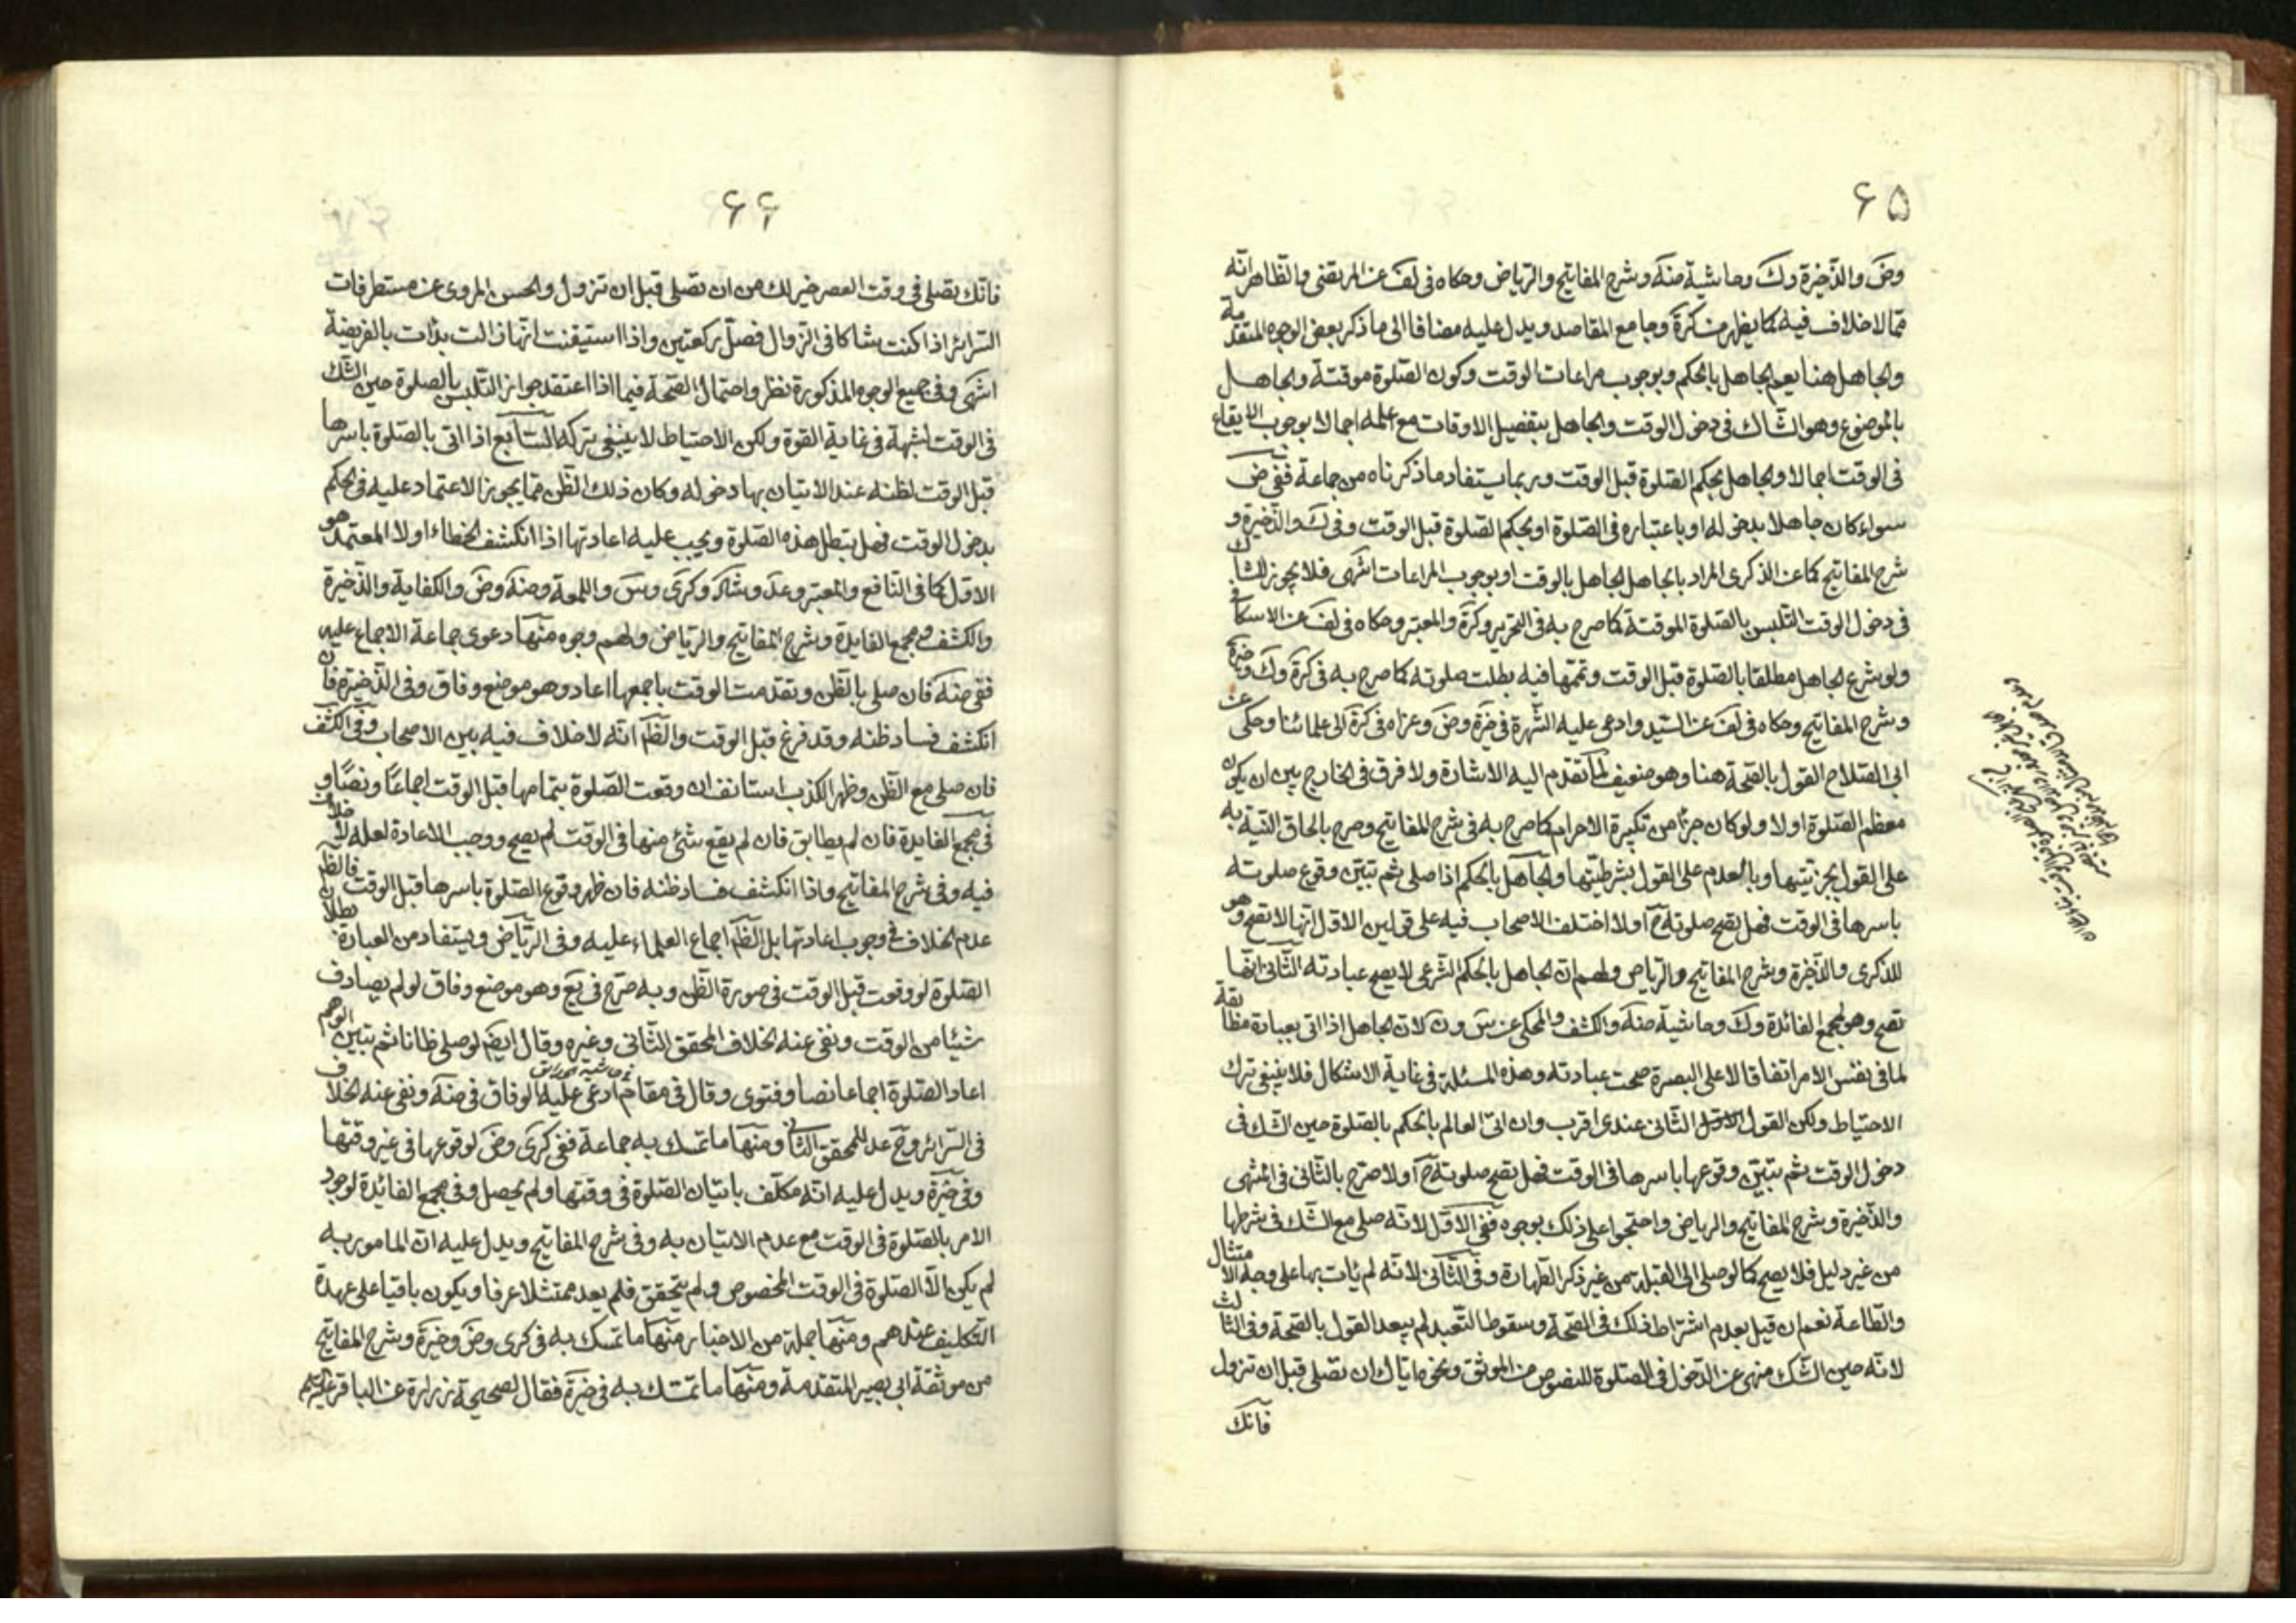 ۶۵
وض والذخيرة وك وحاشية منه وشرح المفاتيح والرياض وحكاه فى لف عن المرتضى والظاهر انه
مما لا خلاف فيه كما يظهر من كرة وجامع المقاصد ويدل عليه مضافا الى ما ذكر بعض الوجوه المتقدمة
والجاهل هنا يعم الجاهل بالحكم وبوجوب مراعات الوقت وكون الصلوة موقتة والجاهل
بالموضوع وهو الشاك فى دخول الوقت والجاهل بتفصيل الاوقات مع علمه اجمالا بوجوب الايقاع
فى الوقت اجمالا والجاهل بحكم الصلوة قبل الوقت وربما يستفاد ما ذكرناه من جماعة ففى ض
سواء كان جاهلا بدخوله او باعتباره فى الصلوة او بحكم الصلوة قبل الوقت وفى ك والذخيرة و
شرح المفاتيح كما عن الذكرى المراد بالجاهل الجاهل بالوقت او بوجوب المراعات انتهى فلا يجوز للشاك
فى دخول الوقت التلبس بالصلوة الموقتة كما صرح به فى التحرير وكرة والمعتبر وحكاه فى لف عن الاسكافى
ولو شرع الجاهل مطلقا بالصلوة قبل الوقت وتممها فيه بطلت صلوته كما صرح به فى كرة وك وخيرة
وشرح المفاتيح وحكاه فى لف عن السيد وادعى عليه الشهرة فى خيرة وض وعزاه فى كرة الى علمائنا وحكى عن
ابى الصلاح القول بالصحة هنا وهو ضعيف لما تقدم اليه الاشارة ولا فرق فى الخارج بين ان يكون
معظم الصلوة اولا ولو كان جزءا من تكبيرة الاحرام كما صرح به فى شرح المفاتيح وصرح بالحاق النية به
على القول بجزئيتها وبالعدم على القول بشرطيتها والجاهل بالحكم اذا صلى ثم تبين وقوع صلوته
باسرها فى الوقت فهل تصح صلوته ح اولا اختلف الاصحاب فيه على قولين الاول انها لا تصح وهو
للذكرى والذخيرة وشرح المفاتيح والرياض ولهم ان الجاهل بالحكم الشرعى لا يصح عبادته الثانى انها
تصح وهو لمجمع الفائدة وك وحاشية منه والكشف والمحكى عن س ون لان الجاهل اذا اتى بعبادة مطابقة
لما فى نفس الامر اتفاقا لا على البصرة صحت عبادته وهذه المسئلة فى غاية الاشكال فلا ينبغى ترك
الاحتياط ولكن القول الثانى عندى اقرب وان اتى العالم بالحكم بالصلوة حين الشك فى
دخول الوقت ثم تبين وقوعها باسرها فى الوقت فهل تصح صلوته ح اولا صرح بالثانى فى المنتهى
والذخيرة وشرح المفاتيح والرياض واحتجوا على ذلك بوجوه ففى الاول لانه صلى مع الشك فى شرطها
من غير دليل فلا يصح كما لوصلى الى القبلة من غير ذكر الطهارة وفى الثانى لانه لم يأت بها على وجه الامتثال
والطاعة نعم ان قيل بعدم اشتراط ذلك فى الصحة وسقوط التعبد لم يبعد القول بالصحة وفى الثالث
لانه حين الشك منهى عن الدخول فى الصلوة للنصوص من الموثق ونحو ما اياك ان تصلى قبل ان تزول
فانك
۶۶
فانك تصلى فى وقت العصر خير لك من ان تصلى قبل ان تزول والحسن المروى عن مستطرفات
السرائر اذا كنت شاكا فى الزوال فصل ركعتين واذا استيقنت انها زالت بدأت بالفريضة
انتهى وفى جميع الوجوه المذكورة نظر واحتمال الصحة فيما اذا اعتقد جواز التلبس بالصلوة حين الشك
فى الوقت لشبهة فى غاية القوة ولكن الاحتياط لا ينبغى تركه السابع اذا اتى بالصلوة باسرها
قبل الوقت لظنه عند الاتيان بها دخوله وكان ذلك الظن مما يجوز الاعتماد عليه فى الحكم
بدخول الوقت فهل تبطل هذه الصلوة ويجب عليه اعادتها اذا انكشف الخطاء اولا المعتمد هو
الاول كما فى النافع والمعتبر وعد وشاد وكرى وس واللمعة ومنه وض والكفاية والذخيرة
والكشف ومجمع الفايدة وشرح المفاتيح والرياض ولهم وجوه منها دعوى جماعة الاجماع عليه
ففى منه فان صلى بالظن وتقدمت الوقت باجمعها اعاد وهو موضع وفاق وفى الذخيرة فان
انكشف فساد ظنه وقد فرغ قبل الوقت والظم انه لا خلاف فيه بين الاصحاب وفى الكشف
فان صلى مع الظن وظهر الكذب استانف ان وقعت الصلوة بتمامها قبل الوقت اجماعا ونصا و
فى مجمع الفايدة فان لم يطابق فان لم يقع شئ منها فى الوقت لم يصح ووجب الاعادة لعله لا خلاف
فيه وفى شرح المفاتيح واذا انكشف فساد ظنه فان ظهر وقوع الصلوة باسرها قبل الوقت فالظم
عدم الخلاف فى وجوب اعادتها بل الظم اجماع العلماء عليه وفى الرياض ويستفاد من العبارة بطلان
الصلوة لو وقعت قبل الوقت فى صورة الظن وبه صرح فى يع وهو موضع وفاق لو لم يصادف
شيئا من الوقت ونفى عنه الخلاف المحقق الثانى وغيره وقال ايضم لو صلى ظانا ثم تبين الوهم
اعاد الصلوة اجماعا نصا وفتوى وقال فى مقام ادعى عليه الوفاق فى منه ونفى عنه الخلاف
فى السرائر وح عد للمحقق الثانى ومنها ما تمسك به جماعة ففى كرى وض لوقوعها فى غير وقتها
وفى خيرة ويدل عليه انه مكلف باتيان الصلوة فى وقتها ولم يحصل وفى مجمع الفائدة لوجود
الامر بالصلوة فى الوقت مع عدم الاتيان به وفى شرح المفاتيح ويدل عليه ان المامور به
لم يكن الا الصلوة فى الوقت المخصوص ولم يتحقق فلم يعد ممتثلا عرفا ويكون باقيا على عهدة
التكليف عندهم ومنها جملة من الاخبار منها ما تمسك به فى كرى وض وخيرة وشرح المفاتيح
من موثقة ابى بصير المتقدمة ومنها ما تمسك به فى خيرة فقال لصحيحة زرارة عن الباقر